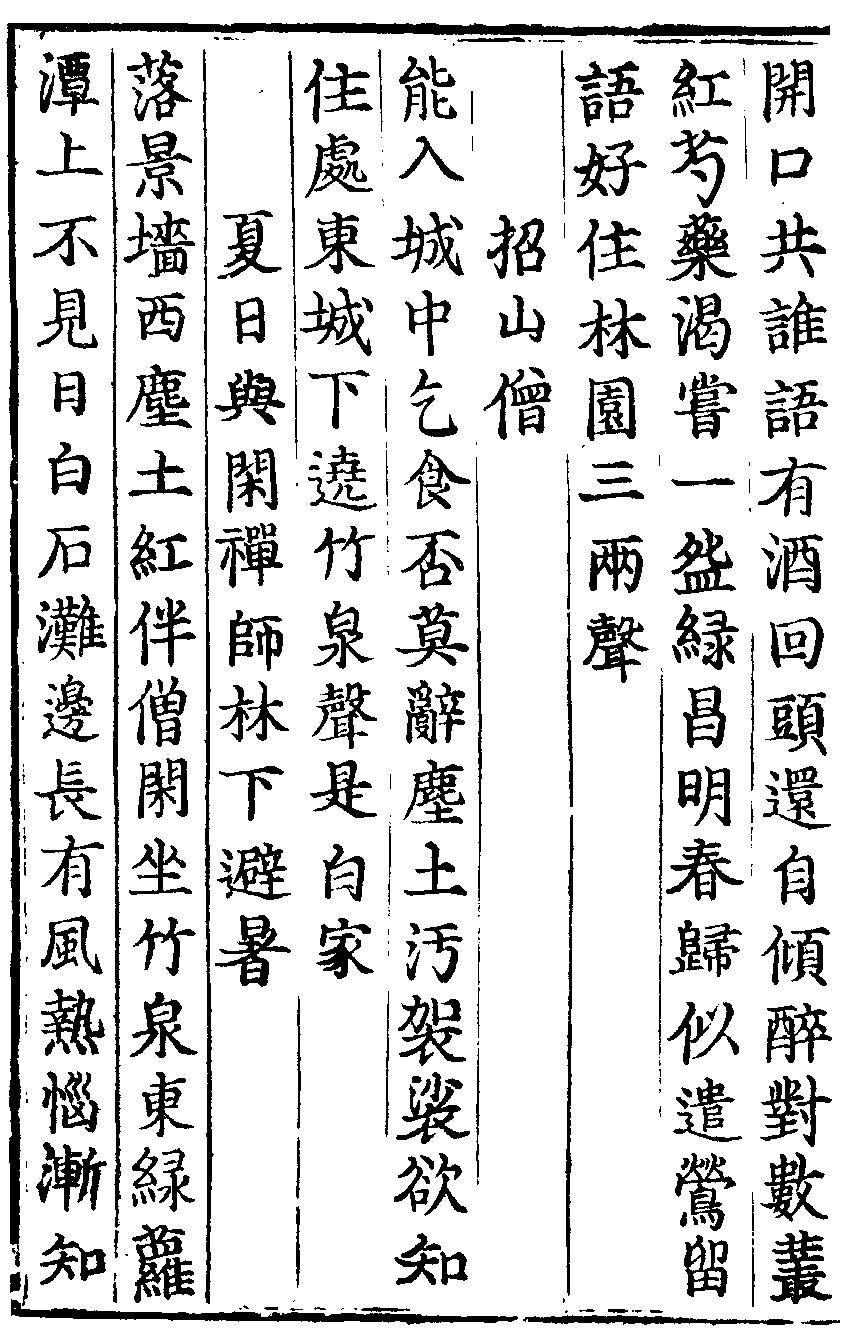 開口共誰語有酒回頭還自傾醉對數叢
紅芍藥渴嘗一盌緑昌明春歸似遣鶯留
語好住林園三兩聲
招山僧
能入城中乞食否莫辭塵土汚袈裟欲知
住處東城下遶竹泉聲是白家
夏日與閑禪師林下避暑
落景墻西塵土紅伴僧閑坐竹泉東緑蘿
潭上不見日白石灘邊長有風熱惱漸知